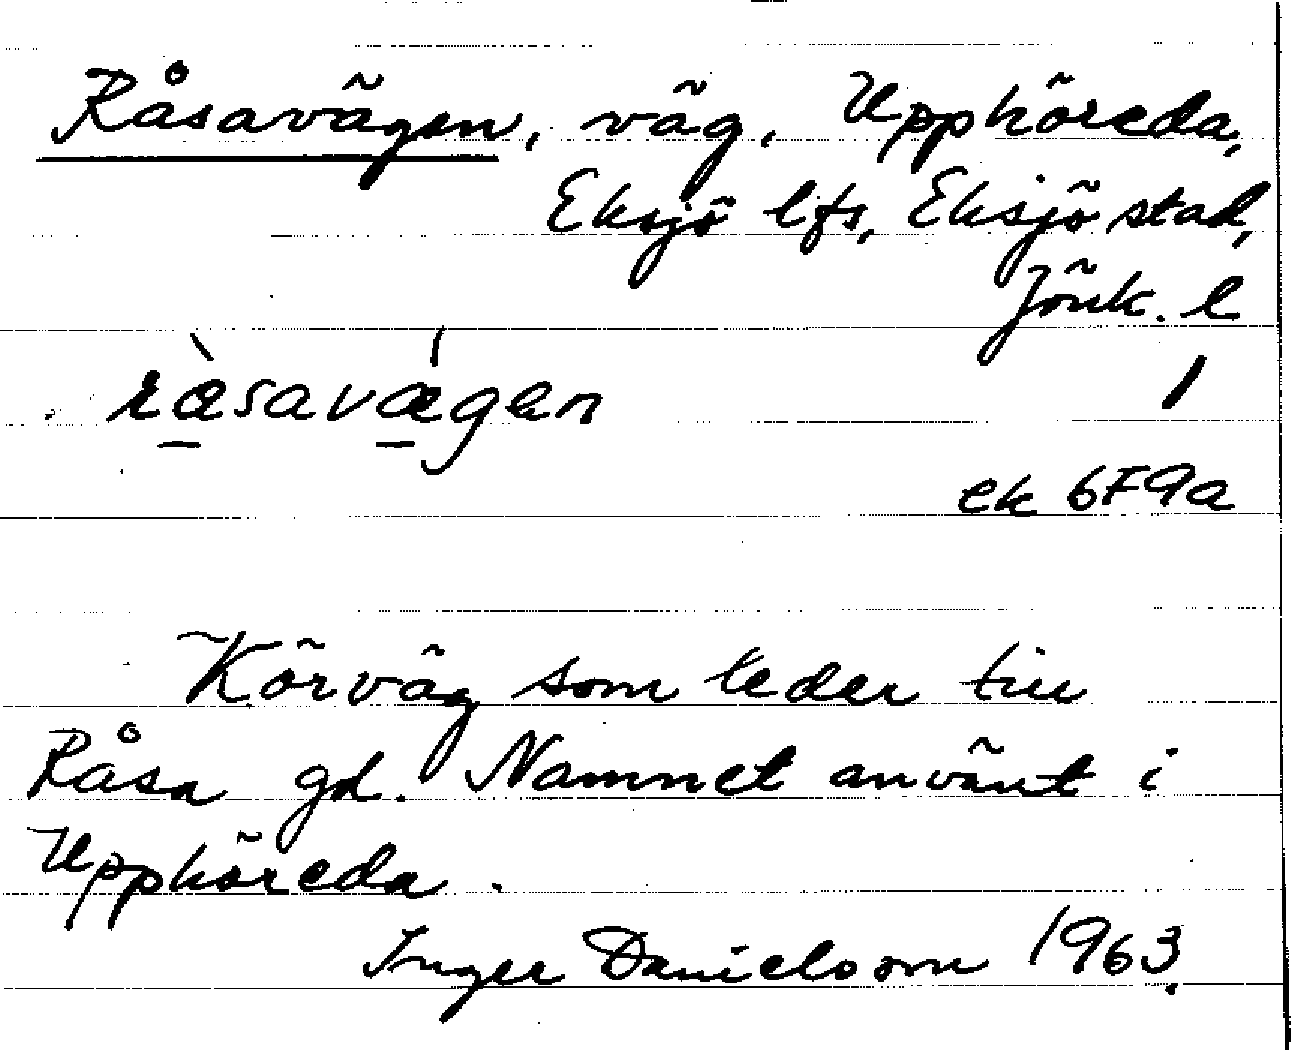 Råsavägen, väg, Upphöreda,
Eksjö lfs, Eksjö stad,
Jönk. l
ræ̀savǽgen
1
ek 6F9a
Körväg som leder till
Råsa gd. Namnet använt i
Upphöreda.
Inger Danielsson 1963.